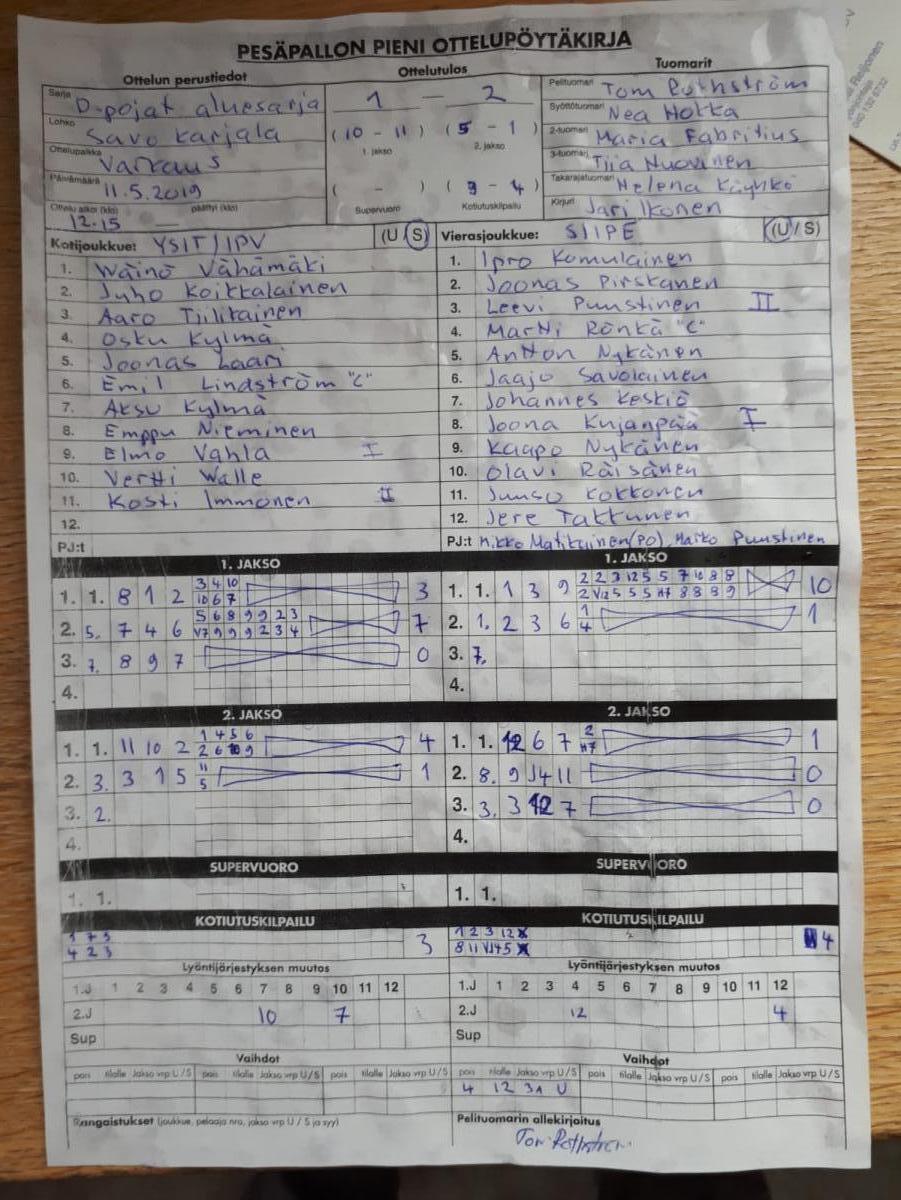 PESÄPALLON PIENI OTTELUPÖYTÄKIRJA
Ottelun perustiedot Ottelutulos Tuomarit
Sarja D-pojat aluesarja
Lohko Savo karjala
Ottelupaikka Varkaus
Päivämäärä 11.5.2019
Ottelu alkoi (klo) päättyi (klo)
12.15 —
1 — 2
(10 - 11) (5 - 1)
1. jakso 2. jakso
( - ) (3 - 4)
Supervuoro Kotiutuskilpailu
Pelituomari Tom Rothström
Syöttötuomari Nea Hokka
2-tuomari Maria Fabritius
3-tuomari Tiia Nuovinen
Takarajatuomari Helena Käyhkö
Kirjuri Jari Ikonen
Kotijoukkue: YSIT/JPV (U/S)
1. Wäinö Vähämäki
2. Juho Koikkalainen
3. Aaro Tiilikainen
4. Osku Kylmä
5. Joonas Laari
6. Emil Lindström "C"
7. Aksu Kylmä
8. Emppu Nieminen
9. Elmo Vahla I
10. Vertti Walle
11. Kosti Immonen II
12.
PJ:t
Vierasjoukkue: SIIPE (U/S)
1. Ipro Komulainen
2. Joonas Pirskanen
3. Leevi Puustinen II
4. Martti Rönkä "C"
5. Antton Nykänen
6. Jaajo Savolainen
7. Johannes Keskiö
8. Joona Kujanpää I
9. Kaapo Nykänen
10. Olavi Räisänen
11. Juuso Kokkonen
12. Jere Takkunen
PJ:t Mikko Matikainen(PO), Marko Puustinen
1. JAKSO
3 4 10
1. 1. 8 1 2 10 6 7 3
5 6 8 9 9 2 3
2. 5. 7 4 6 V7 9 9 9 2 3 4 7
3. 7. 8 9 7 0
4.
1. JAKSO
2 2 3 12 5 5 7 10 8 8
1. 1. 1 3 9 2 V12 5 5 5 H7 8 8 8 9 10
1
2. 1. 2 3 6 4 1
3. 7.
4.
2. JAKSO
1 4 5 6
1. 1. 11 10 2 2 6 10 9 4
11
2. 3. 3 1 5 5 1
3. 2.
4.
2. JAKSO
2
1. 1. 12 6 7 H7 1
2. 8. 9 J4 11 0
3. 3. 3 12 7 0
4.
SUPERVUORO
1. 1.
SUPERVUORO
1. 1.
KOTIUTUSKILPAILU
1 7 5
4 2 3 3
KOTIUTUSKILPAILU
1 2 3 12 X
8 11 V14 5 X 4
Lyöntijärjestyksen muutos
1.J 1 2 3 4 5 6 7 8 9 10 11 12
2.J 10 7
Sup
Lyöntijärjestyksen muutos
1.J 1 2 3 4 5 6 7 8 9 10 11 12
2.J 12 4
Sup
Vaihdot
pois tilalle Jakso vrp U/S pois tilalle Jakso vrp U/S pois tilalle Jakso vrp U/S
Vaihdot
pois tilalle Jakso vrp U/S pois tilalle Jakso vrp U/S pois tilalle Jakso vrp U/S
4 12 3A U
Rangaistukset (joukkue, pelaaja nro, jakso vrp U / S ja syy)
Pelituomarin allekirjoitus
Tom Rothström
Reijonen